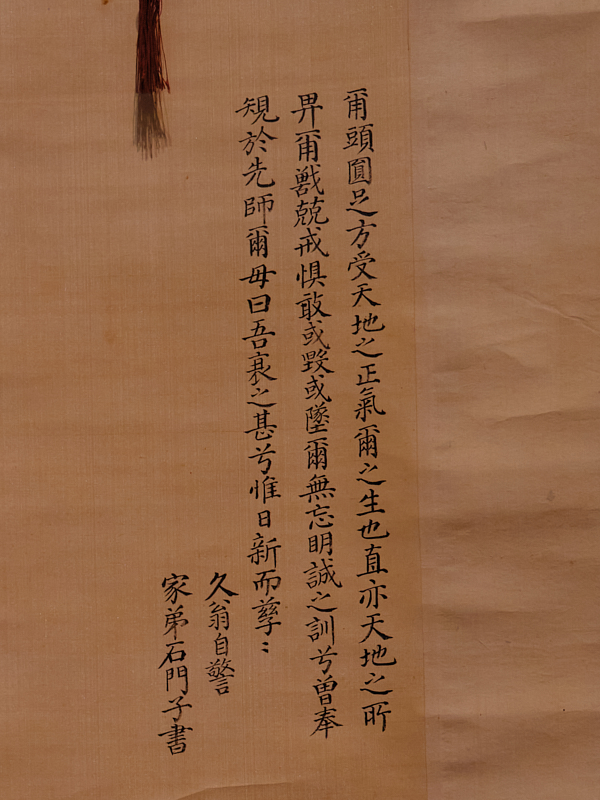 爾頭圓足方受天地之正氣爾之生也直亦天地之所
畀爾戰兢戒惧敢或毀或墜爾無忘明誠之訓兮曾奉
規於先師爾毋曰吾衰之甚兮惟日新而孳〻
久翁自警
家弟石門子書